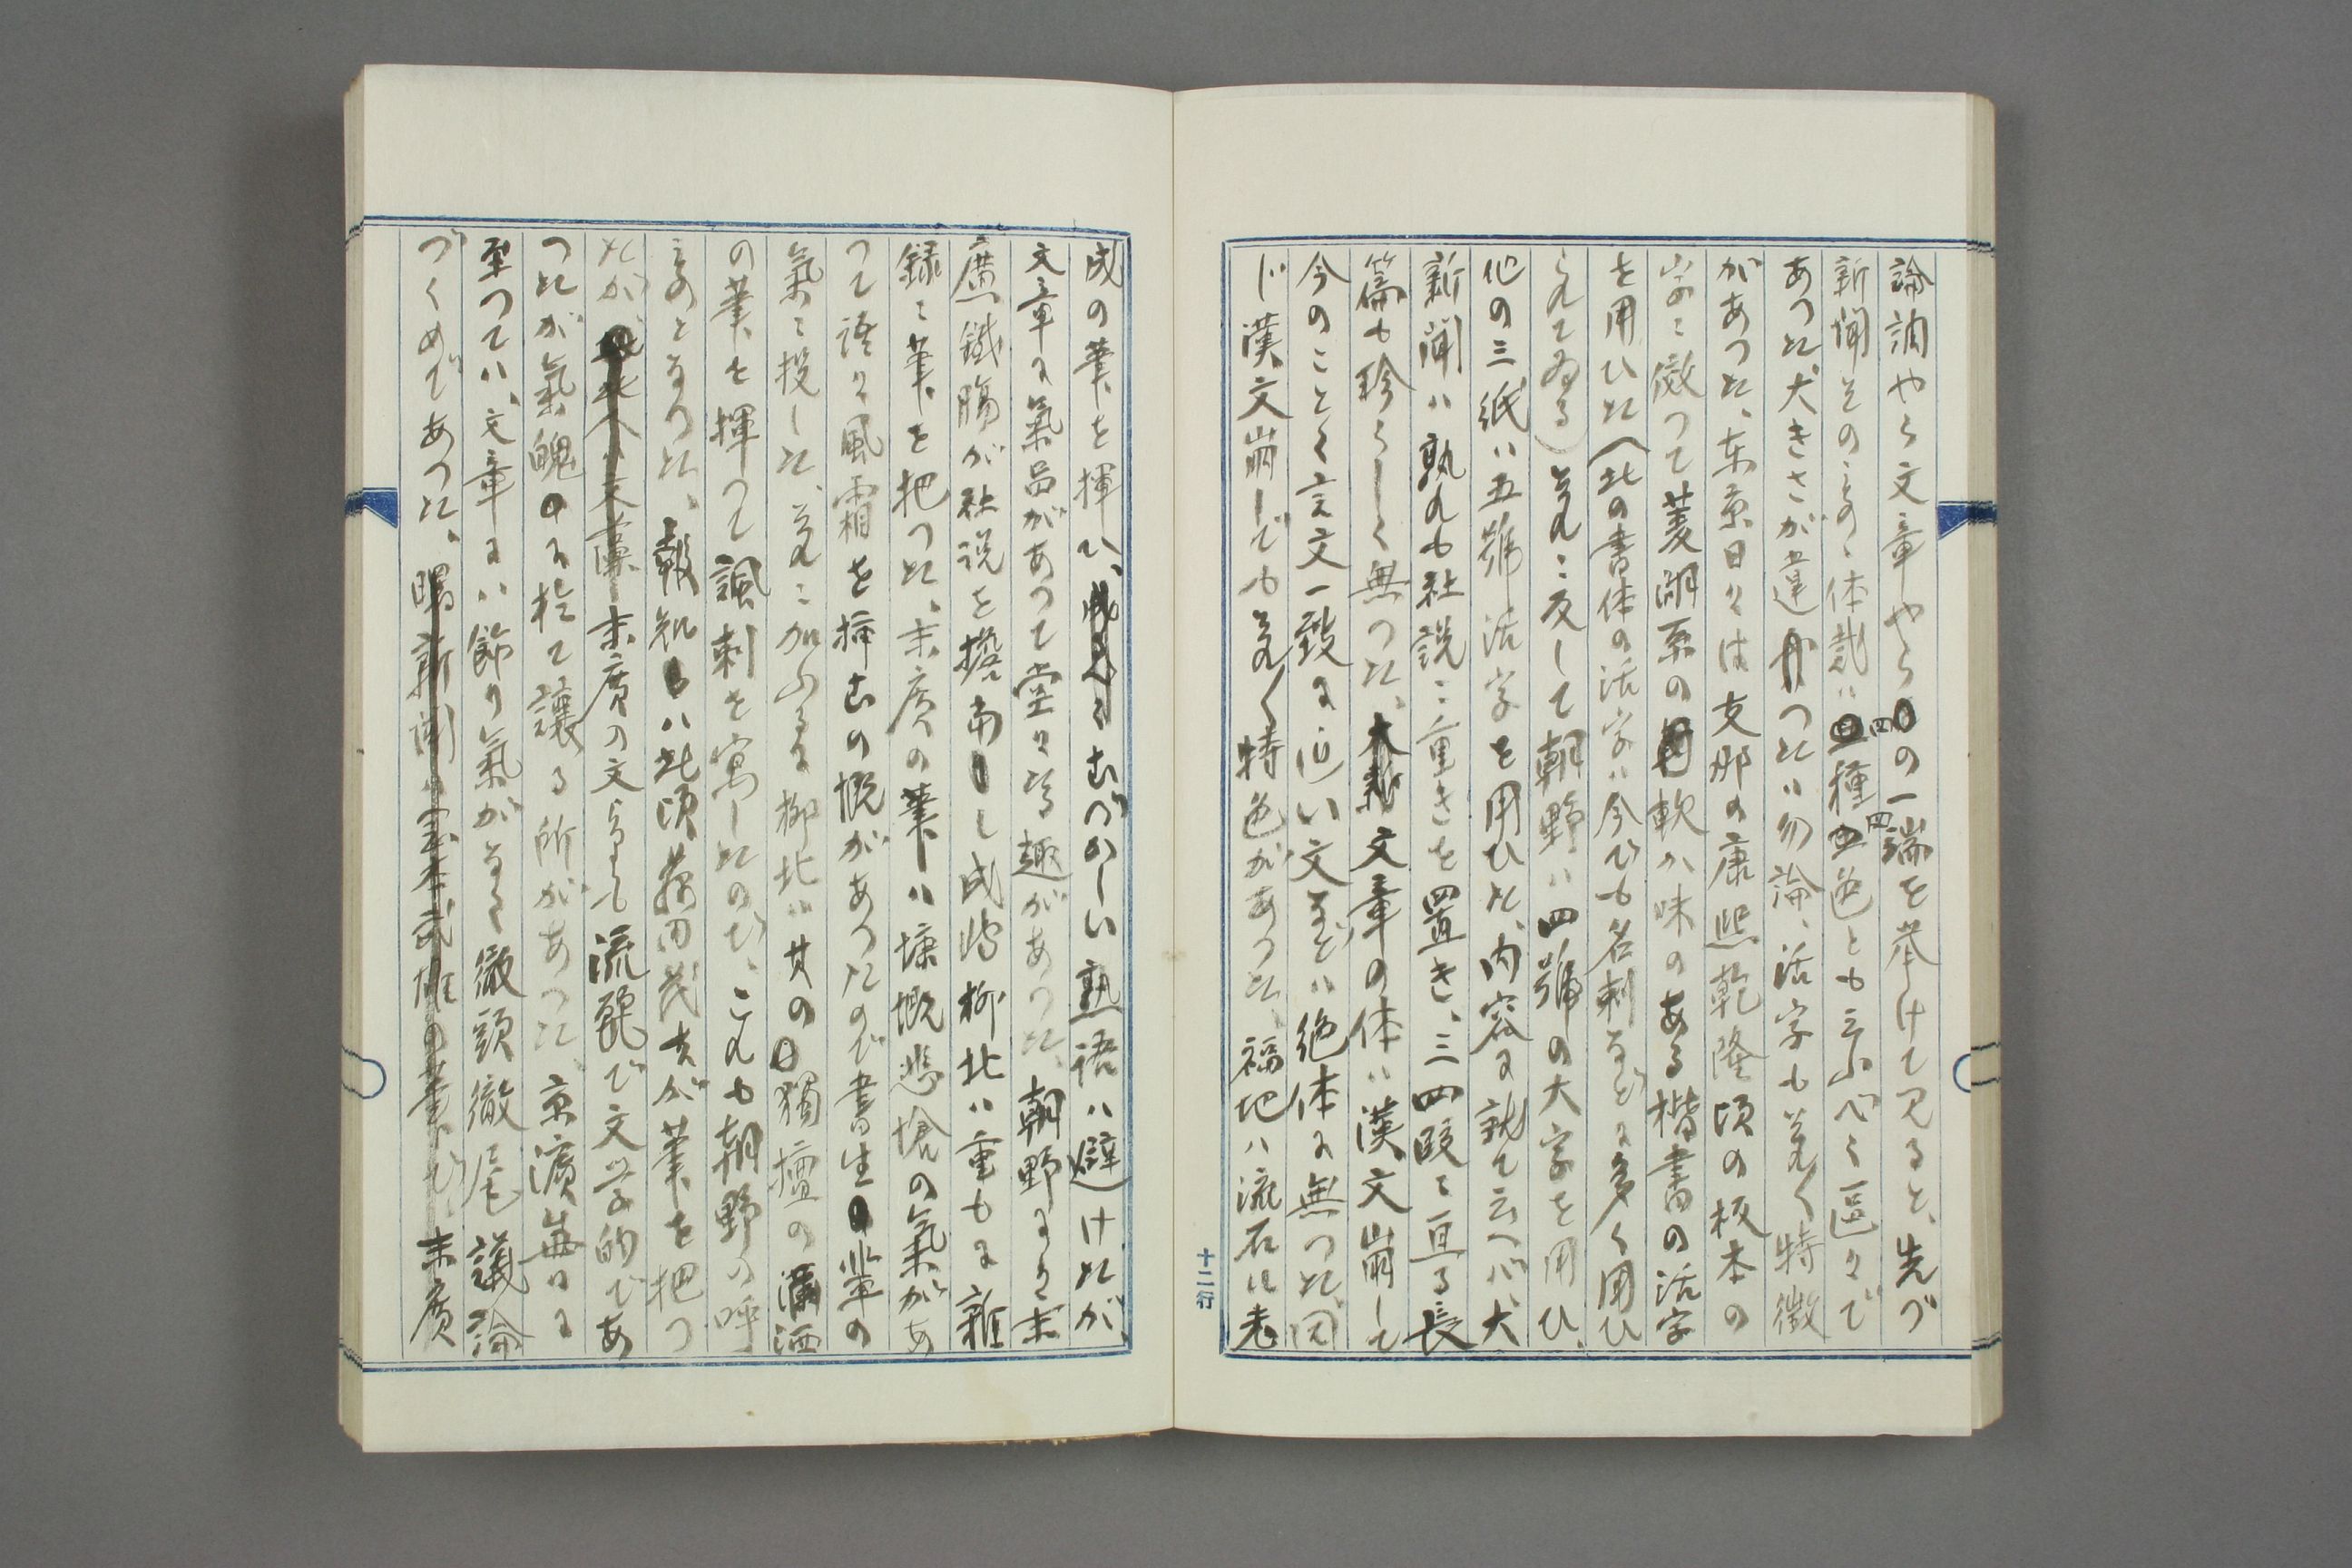 論調やら文章やらの一端を挙けて見ると、先づ
新聞そのものゝ体裁は四種四色とも云ふべく區々で
あつた、大きさが違つたは勿論、活字も各〻特徴
があつた、東京日々は支那の康熙乾隆頃の板本の
字に倣つて菱湖系の軟か味のある楷書の活字
を用ひた（此の書体の活字は今でも名刺などに多く用ひ
られてゐる）これに反して朝野は四號の大字を用ひ、
他の三紙は五號活字を用ひた、内容に就て云へバ、大
新聞は孰れも社説に重きを置き、三四段に亘る長
篇も珍らしく無つた、文章の体は漢文崩して
今のことく言文一致に近い文などは絶体に無つた、同
じ漢文崩しでも各〻特色があつた、福地は流石に老
十二行
成の筆を揮ひ、むづかしい熟語は避けたが、
文章に氣品があつて堂々たる趣があつた、朝野になると末
廣鐵膓が社説を擔當し成嶋柳北は重もに雜
録に筆を把つた、末廣の筆は慷慨悲愴の氣があ
つて語々風霜を挿むの概があつたので書生輩の
氣に投した、これに加ふるに柳北は其の獨擅の瀟洒
の筆を揮つて諷刺を寓したので、これも朝野の呼
ものとなつた、報知は此頃藤田茂吉が筆を把つ
たが、末廣の文よりも流麗で文学的であ
つたが氣魄に於て讓る所があつた、京濱毎日に
至つては、文章には飾り氣がなく徹頭徹尾議論
づくめであつた、末廣